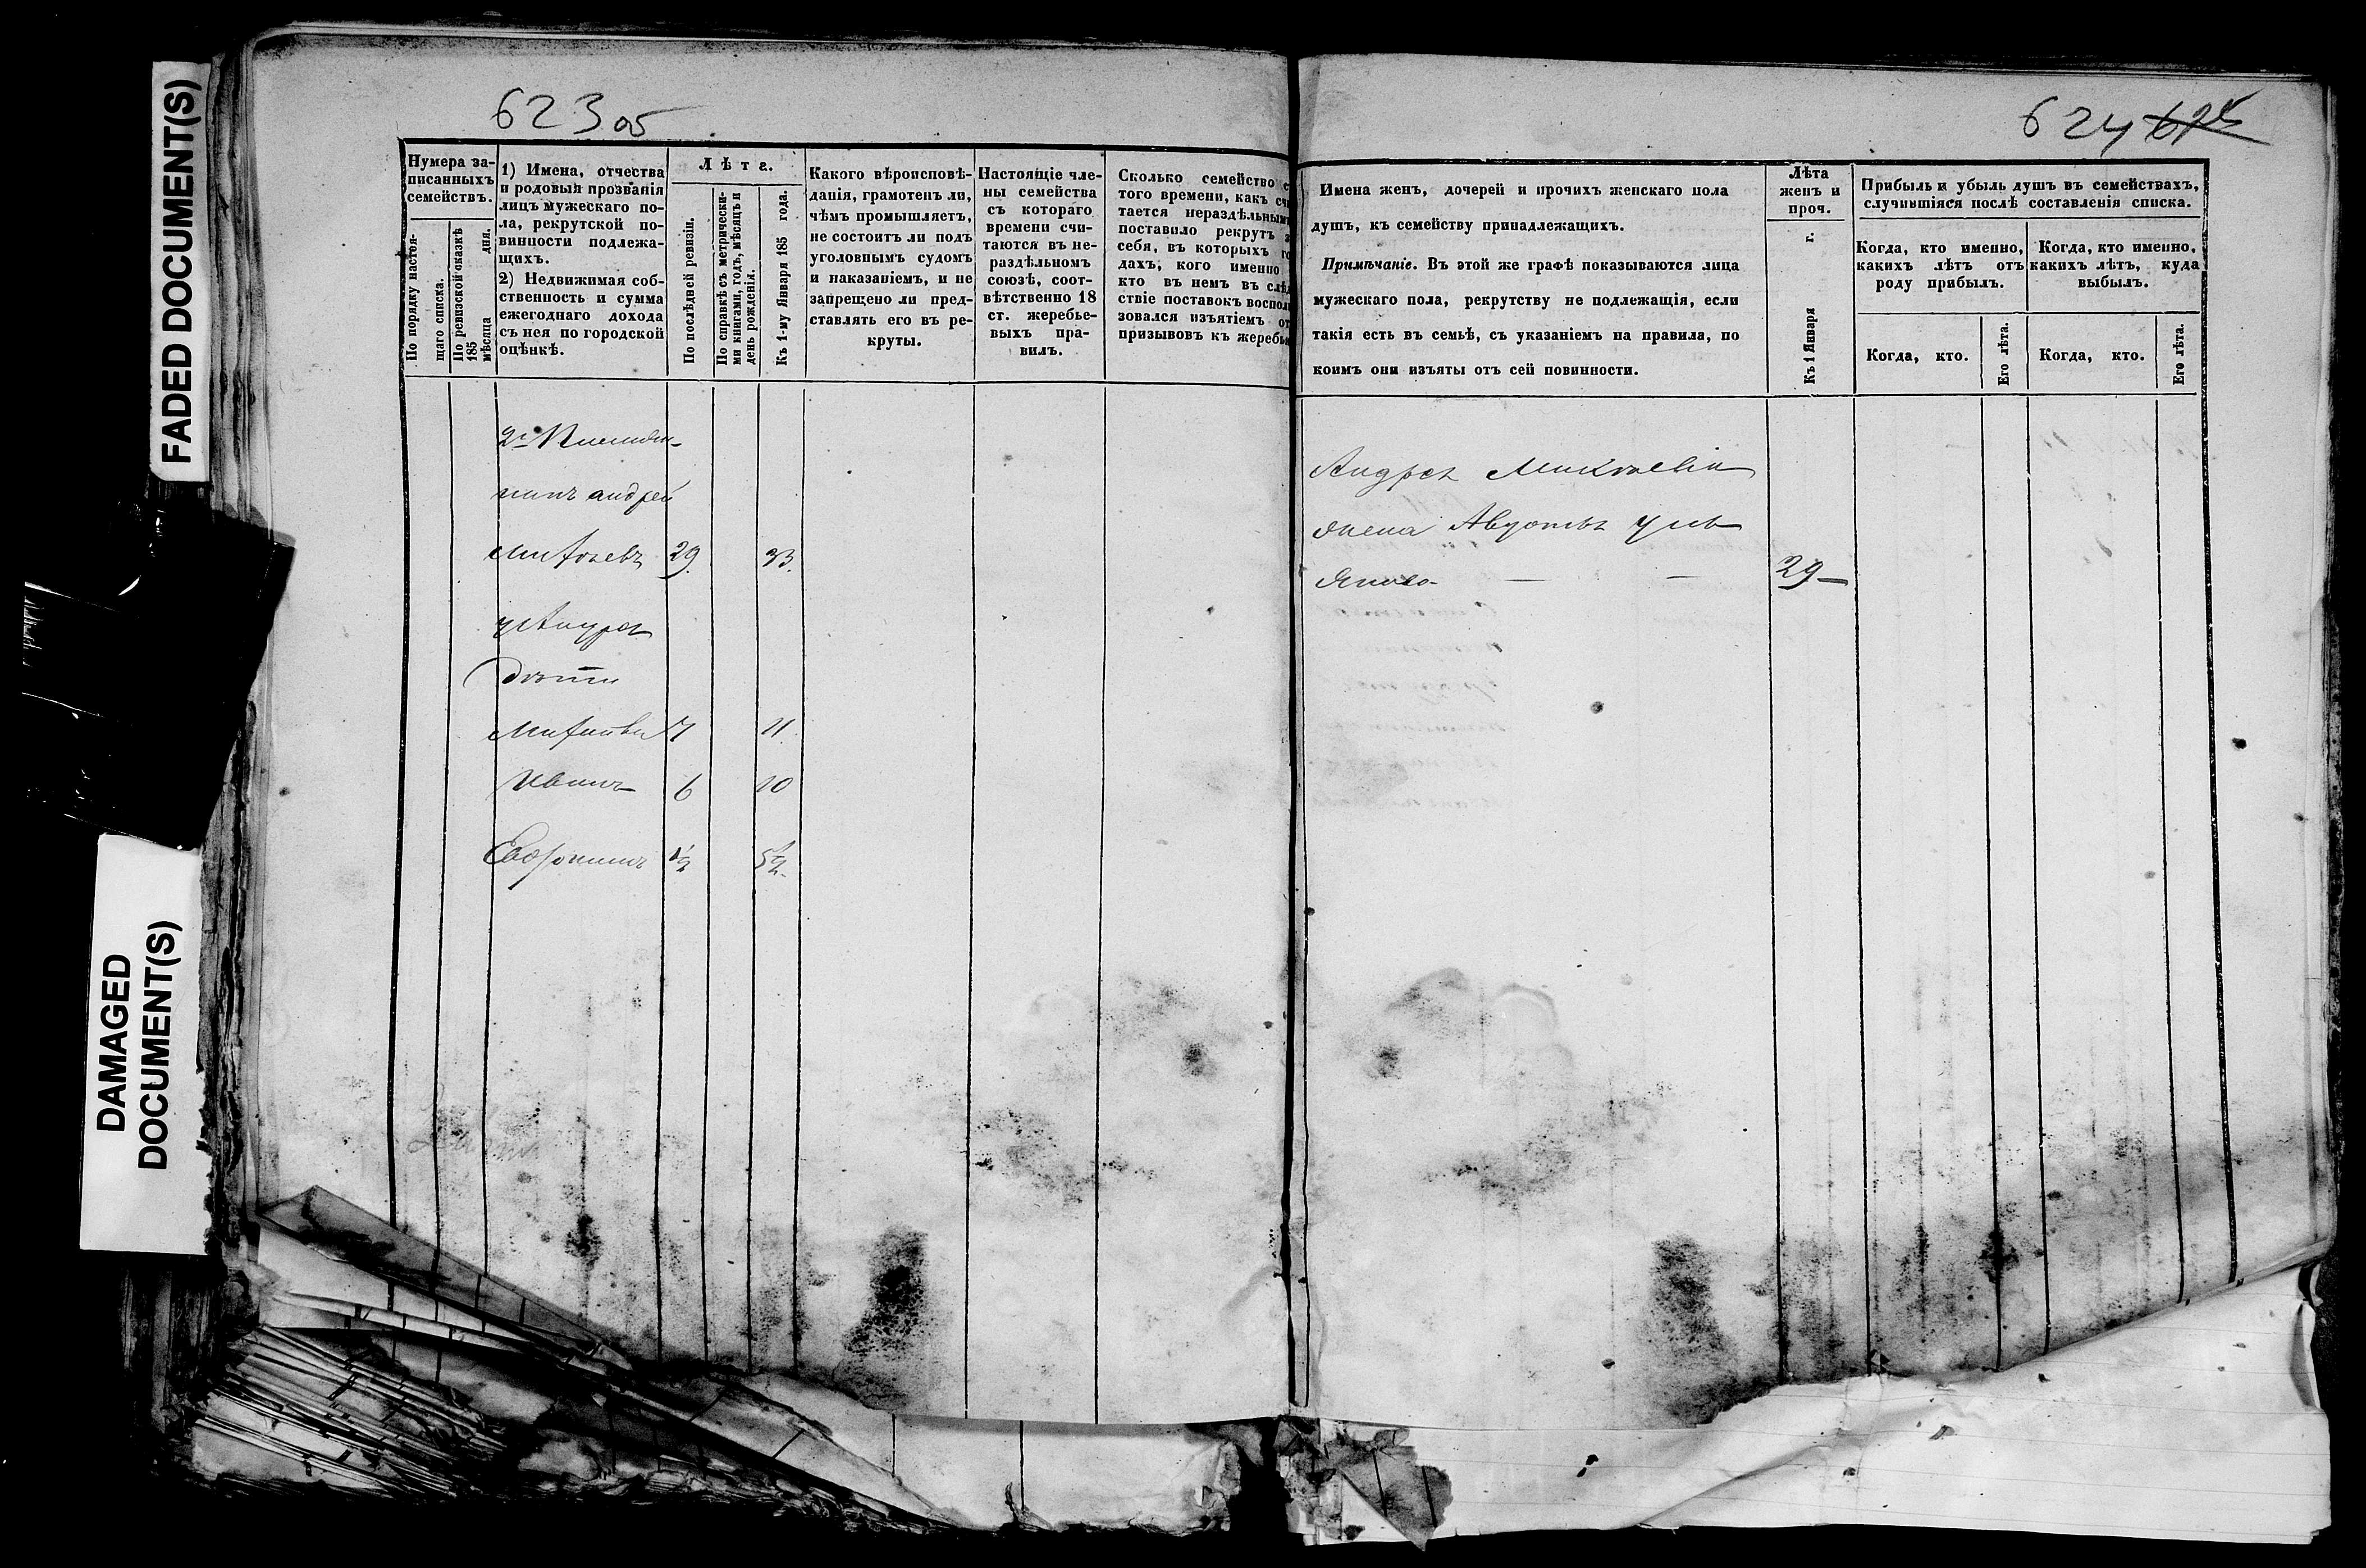 FADED DOCUMENT(S)
DAMAGED
DOCUMENT(S)
623 об
Нумера за-
писанныхъ
семействъ.
По порядку настоя-
щаго списка.
По ревизской сказкѣ
185
мѣсяца дня.
1) Имена, отчества
и родовыя прозванія
лицъ мужескаго по-
ла, рекрутской по-
винности подлежа-
щихъ.
2) Недвижимая соб-
ственность и сумма
ежегоднаго дохода
съ нея по городской
оцѣнкѣ.
Лѣта.
По послѣдней ревизіи.
По справкѣ съ метрически-
ми книгами, годъ, мѣсяцъ и
день рожденія.
Къ 1-му Января 185 года.
Какого вѣроисповѣ-
данія, грамотенъ ли,
чѣмъ промышляетъ,
не состоитъ ли подъ
уголовнымъ судомъ
и наказаніемъ, и не
запрещено ли пред-
ставлять его въ ре-
круты.
Настоящіе чле-
ны семейства
съ котораго
времени счи-
таются въ не-
раздѣльномъ
союзѣ, соот-
вѣтственно 18
ст. жеребье-
выхъ пра-
вилъ.
Сколько семейство с
того времени, какъ счи
тается нераздѣльным
поставило рекрутъ з
себя, въ которыхъ го
дахъ, кого именно
кто въ немъ въ слѣд
ствіе поставокъ восполь
зовался изъятіемъ от
призывовъ къ жеребью
2й
андрей
29 33
дѣти
7 11
Иванъ 6 10
1/2 5 1/2
624
Имена женъ, дочерей и прочихъ женскаго пола
душъ, къ семейству принадлежащихъ.
Примѣчаніе. Въ этой же графѣ показываются лица
мужескаго пола, рекрутству не подлежащія, если
такія есть въ семьѣ, съ указаніемъ на правила, по
коимъ они изъяты отъ сей повинности.
Лѣта
женъ и
проч.
Къ 1 Января г.
Прибыль и убыль душъ въ семействахъ,
случившіяся послѣ составленія списка.
Когда, кто именно,
какихъ лѣтъ отъ
роду прибылъ.
Когда, кто именно,
какихъ лѣтъ, куда
выбылъ.
Когда, кто.
Его лѣта.
Когда, кто.
Его лѣта.
Андрея
жена
29